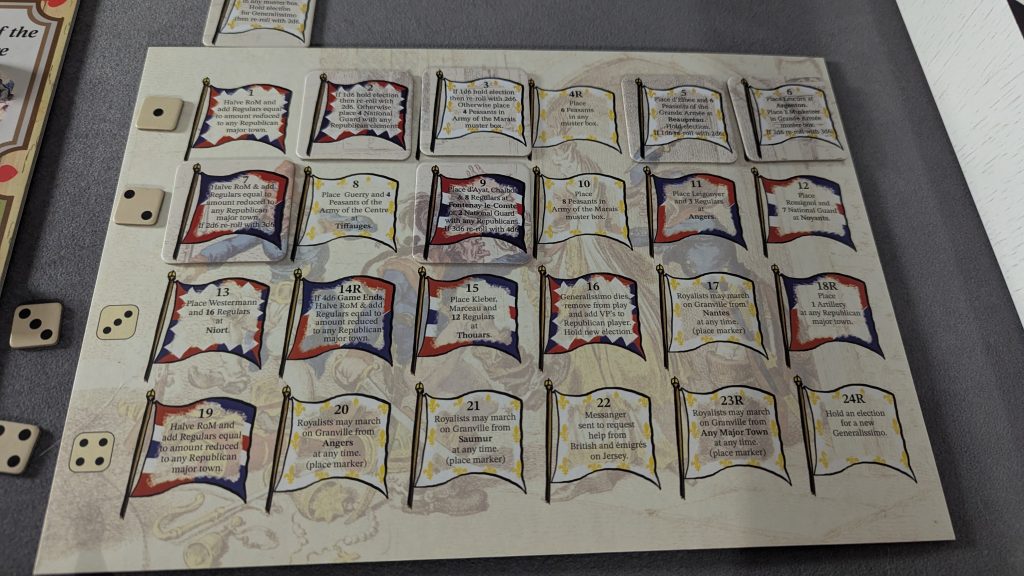 of the
in any muster box.
Hold election
for Generalissimo
then re-roll with 2d6.
1
Halve RoM and
add Regulars equal
to amount reduced
to any Republican
major town.
2
If 1d6 hold election
then re-roll with
2d6. Otherwise
place 4 National
Guard with any
Republican element.
3
If 1d6 hold election
then re-roll with 2d6.
Otherwise place
4 Peasants in
Army of the Marais
muster box.
4R
Place
6 Peasants
in any
muster box.
5
Place d'Elbée and 6
Peasants of the
Grande Armée at
Beaupréau.
Hold election.
If 1d6 re-roll with 2d6.
6
Place Lescure at
Bressuire.
Place
in Grande Armée
muster box.
If 3d6 re-roll with
7
Halve RoM & add
Regulars equal to
amount reduced to
any Republican
major town.
If 2d6 re-roll with 3d6.
8
Place Guerry and 4
Peasants of the
Army of the Centre
at
Tiffauges.
9
Place d'Ayat, Chalbos
& 8 Regulars at
Fontenay-le-Comte
or 2 National Guard
with any Republicans.
If 3d6 re-roll with 4d6.
10
Place
8 Peasants in
Army of the Marais
muster box.
11
Place Leigonyer
and 3 Regulars
at
Angers.
12
Place
Rossignol and
7 National Guard
at
13
Place Westermann
and 16 Regulars
at
Niort.
14R
If 4d6 Game Ends.
Halve RoM & add
Regulars equal to
amount reduced
to any Republican
major town.
15
Place Kleber,
Marceau and
12 Regulars
at
Thouars.
16
Generalissimo dies,
remove from play
and add VP's to
Republican player.
Hold new election.
17
Royalists may march
on Granville from
Nantes
at any time.
(place marker)
18R
Place
1 Artillery
at any Republican
major town.
19
Halve RoM and
add Regulars equal
to amount reduced
to any Republican
major town.
20
Royalists may march
on Granville from
Angers
at any time.
(place marker)
21
Royalists may march
on Granville from
Saumur
at any time.
(place marker)
22
Messanger
sent to request
help from
British and émigrés
on Jersey.
23R
Royalists may march
on Granville from
Any Major Town
at any time.
(place marker)
24R
Hold an election
for a new
Generalissimo.